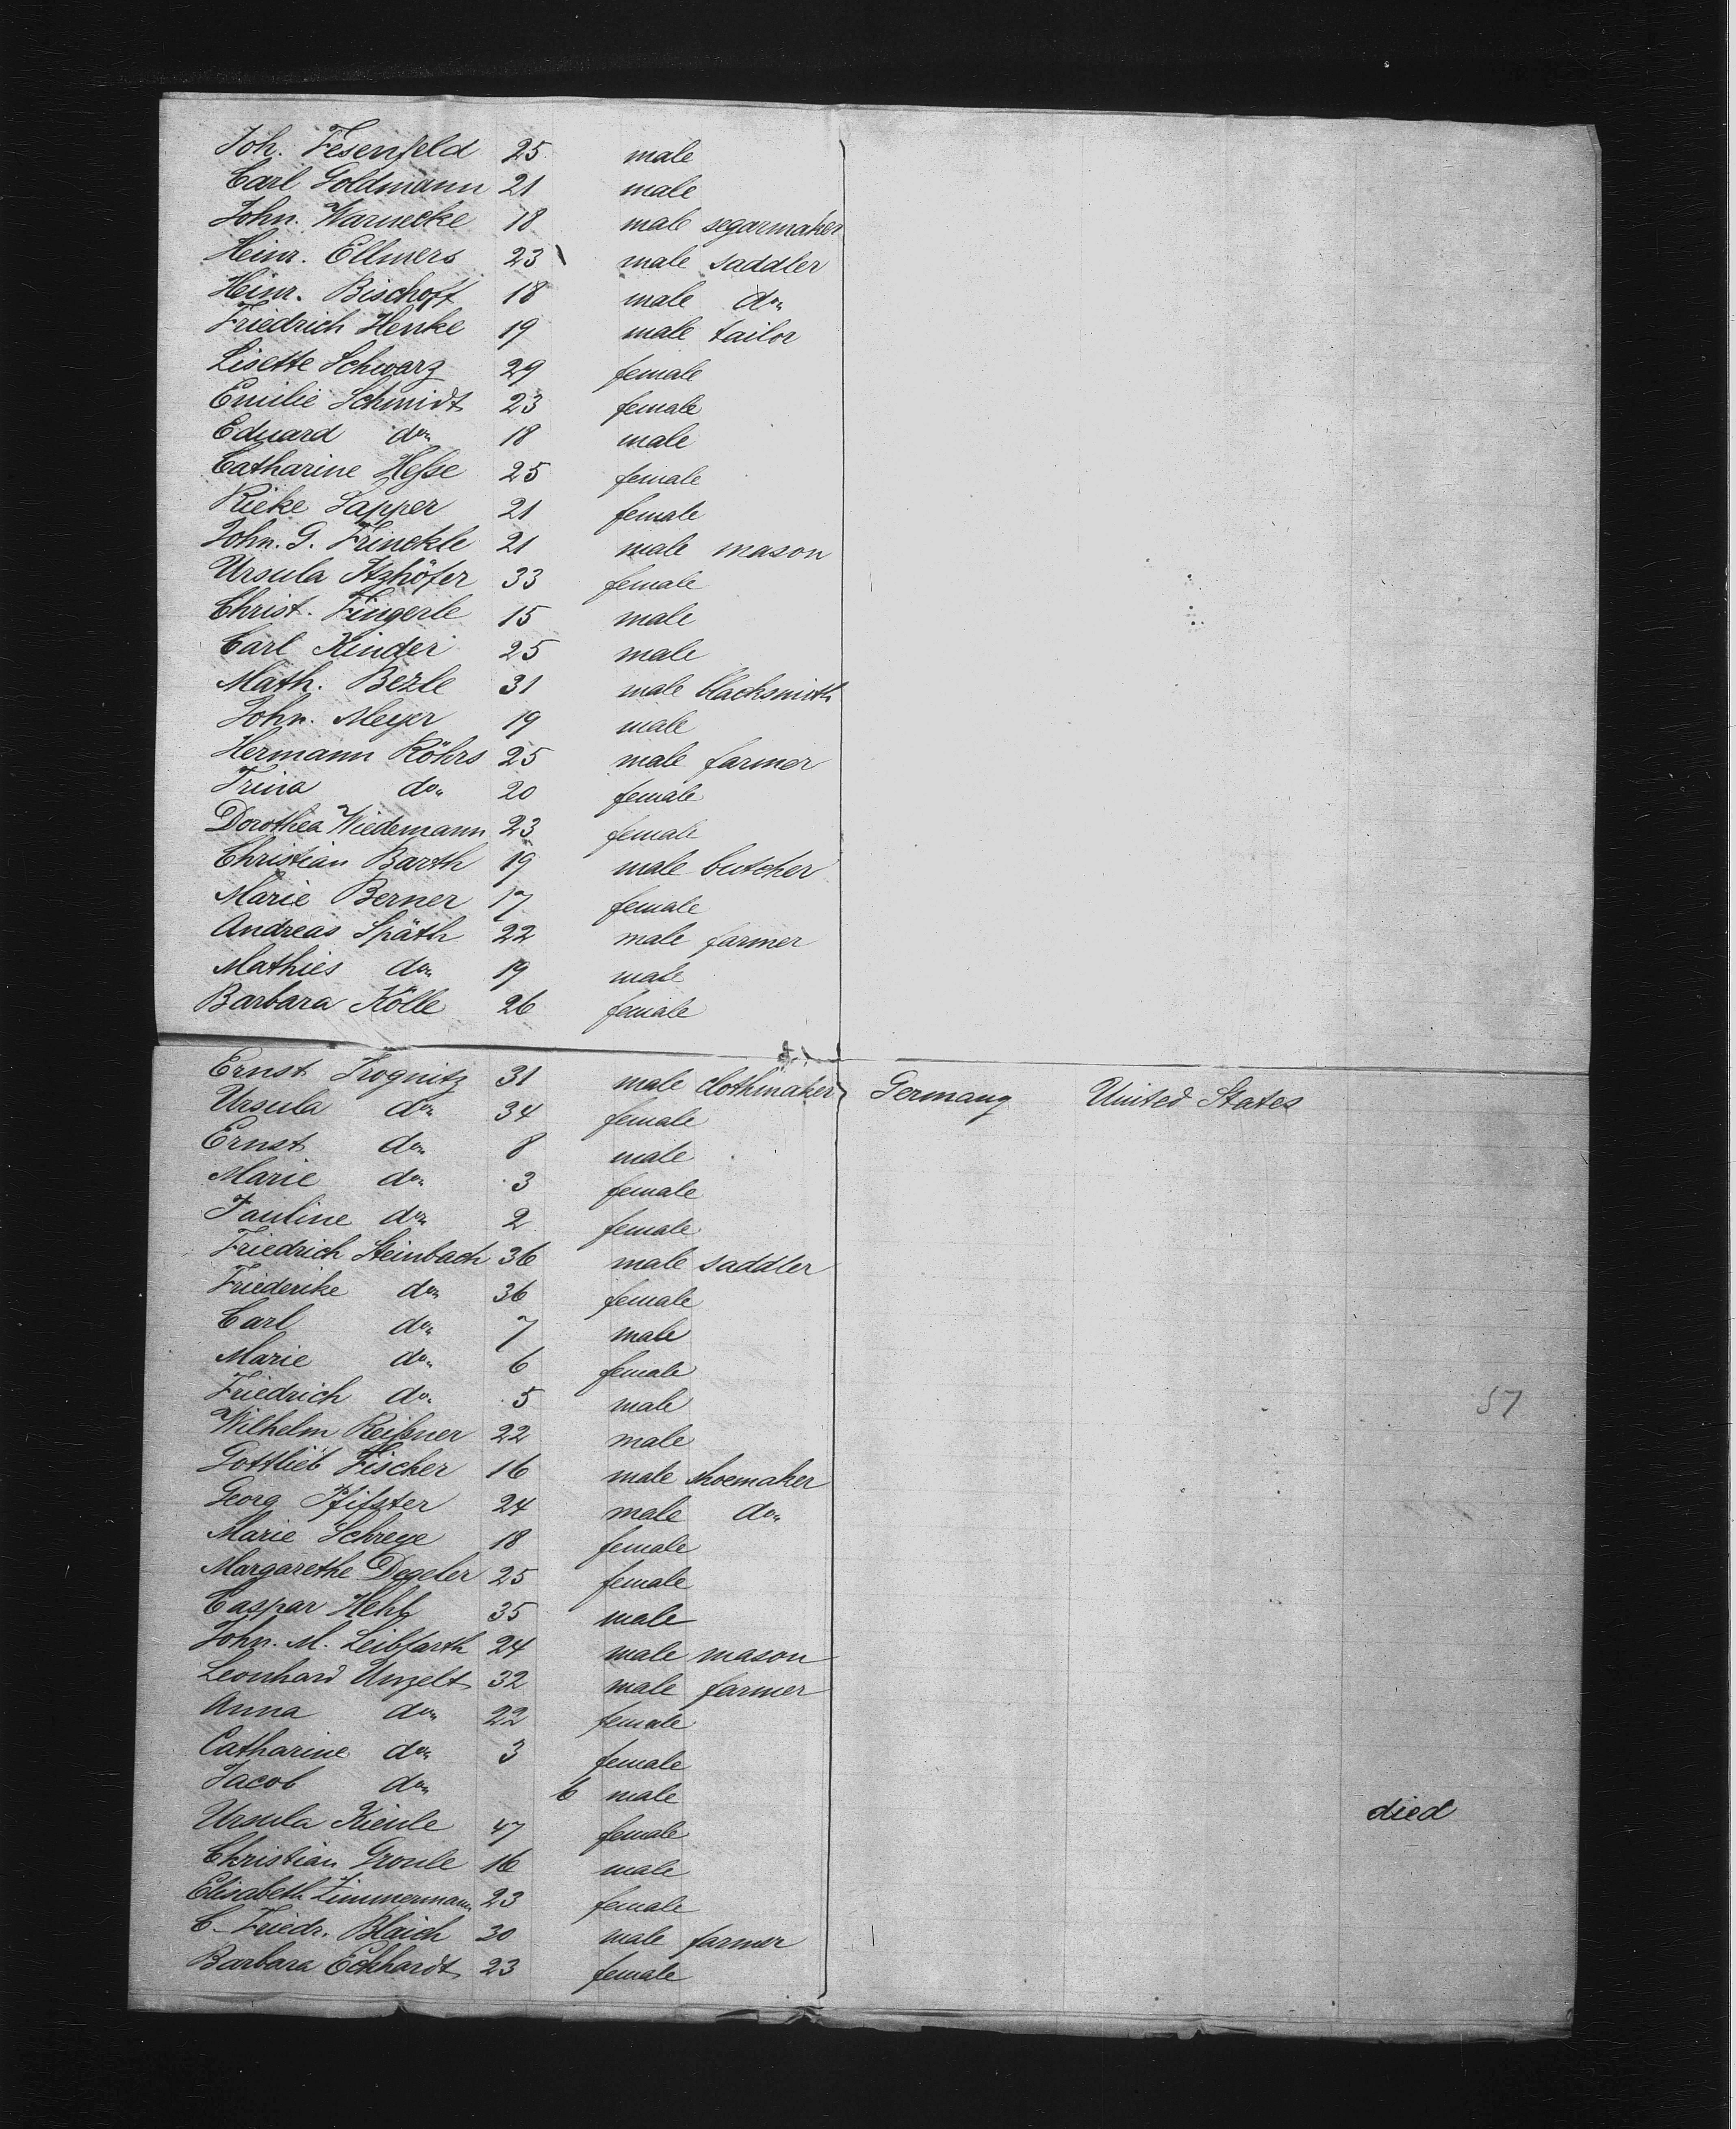 Joh. Fesenfeld 25 male
Carl Goldmann 21 male
John. Warnecke 18 male segarmaker
Heinr. Ellmers 23 male saddler
Heinr. Bischoff 18 male do
Friedrich Henke 19 male tailor
Lisette Schwarz 29 female
Emilie Schmidt 23 female
Eduard do 18 male
Catharine Hesse 25 female
Rieke Sapper 21 female
John. G. Frinckle 21 male mason
Ursula Itzhöfer 33 female
Christ. Fingerle 15 male
Carl Kinder 25 male
Math. Bezle 31 male blacksmith
John. Meyer 19 male
Hermann Röhrs 25 male farmer
Trina do 20 female
Dorothea Wiedemann 23 female
Christian Barth 19 male butcher
Marie Berner 17 female
Andreas Späth 22 male farmer
Mathies do 19 male
Barbara Kölle 26 female
Ernst Trognitz 31 male clothmaker Germany United States
Ursula do 34 female
Ernst do 8 male
Marie do 3 female
Pauline do 2 female
Friedrich Steinbach 36 male saddler
Friederike do 36 female
Carl do 7 male
Marie do 6 female
Friedrich do 5 male 57
Wilhelm Reißner 22 male
Gottlieb Fischer 16 male shoemaker
Georg Pfister 24 male do
Marie Schreye 18 female
Margarethe Degeler 25 female
Caspar 35 male
John. M. Leibfarth 24 male mason
Leonhard Unzelt 32 male farmer
Anna do 22 female
Catharine do 3 female
Jacob do 6 male died
Ursula Kienle 47 female
Christian Gronle 16 male
Elisabeth Zimmermann 23 female
C. Friedr. Blaich 30 male farmer
Barbara Eckhardt 23 female